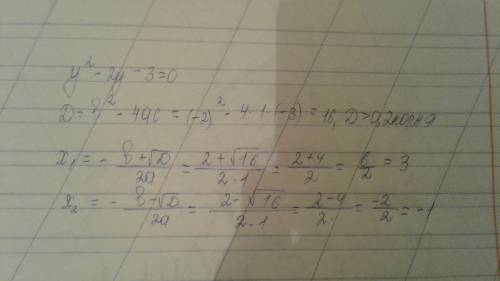 y² - 2y - 3 = 0
D = b² - 4ac = (-2)² - 4·1·(-3) = 16, D>0, 2 корня
x₁ = - b+√D/2a = 2+√16/2·1 = 2+4/2 = 6/2 = 3
x₂ = - b+√D/2a = 2-√16/2·1 = 2-4/2 = -2/2 = -1